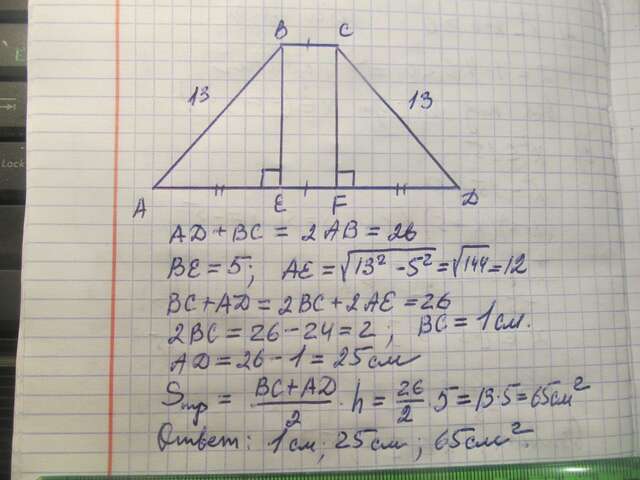 B C
13 13
A E F D
AD + BC = 2AB = 26
BE = 5; AE = √13² - 5² = √144 = 12
BC + AD = 2BC + 2AE = 26
2BC = 26 - 24 = 2; BC = 1 см.
AD = 26 - 1 = 25 см
Sтр = BC + AD / 2 · h = 26 / 2 · 5 = 13 · 5 = 65 см²
Ответ: 1 см; 25 см; 65 см².
Lock